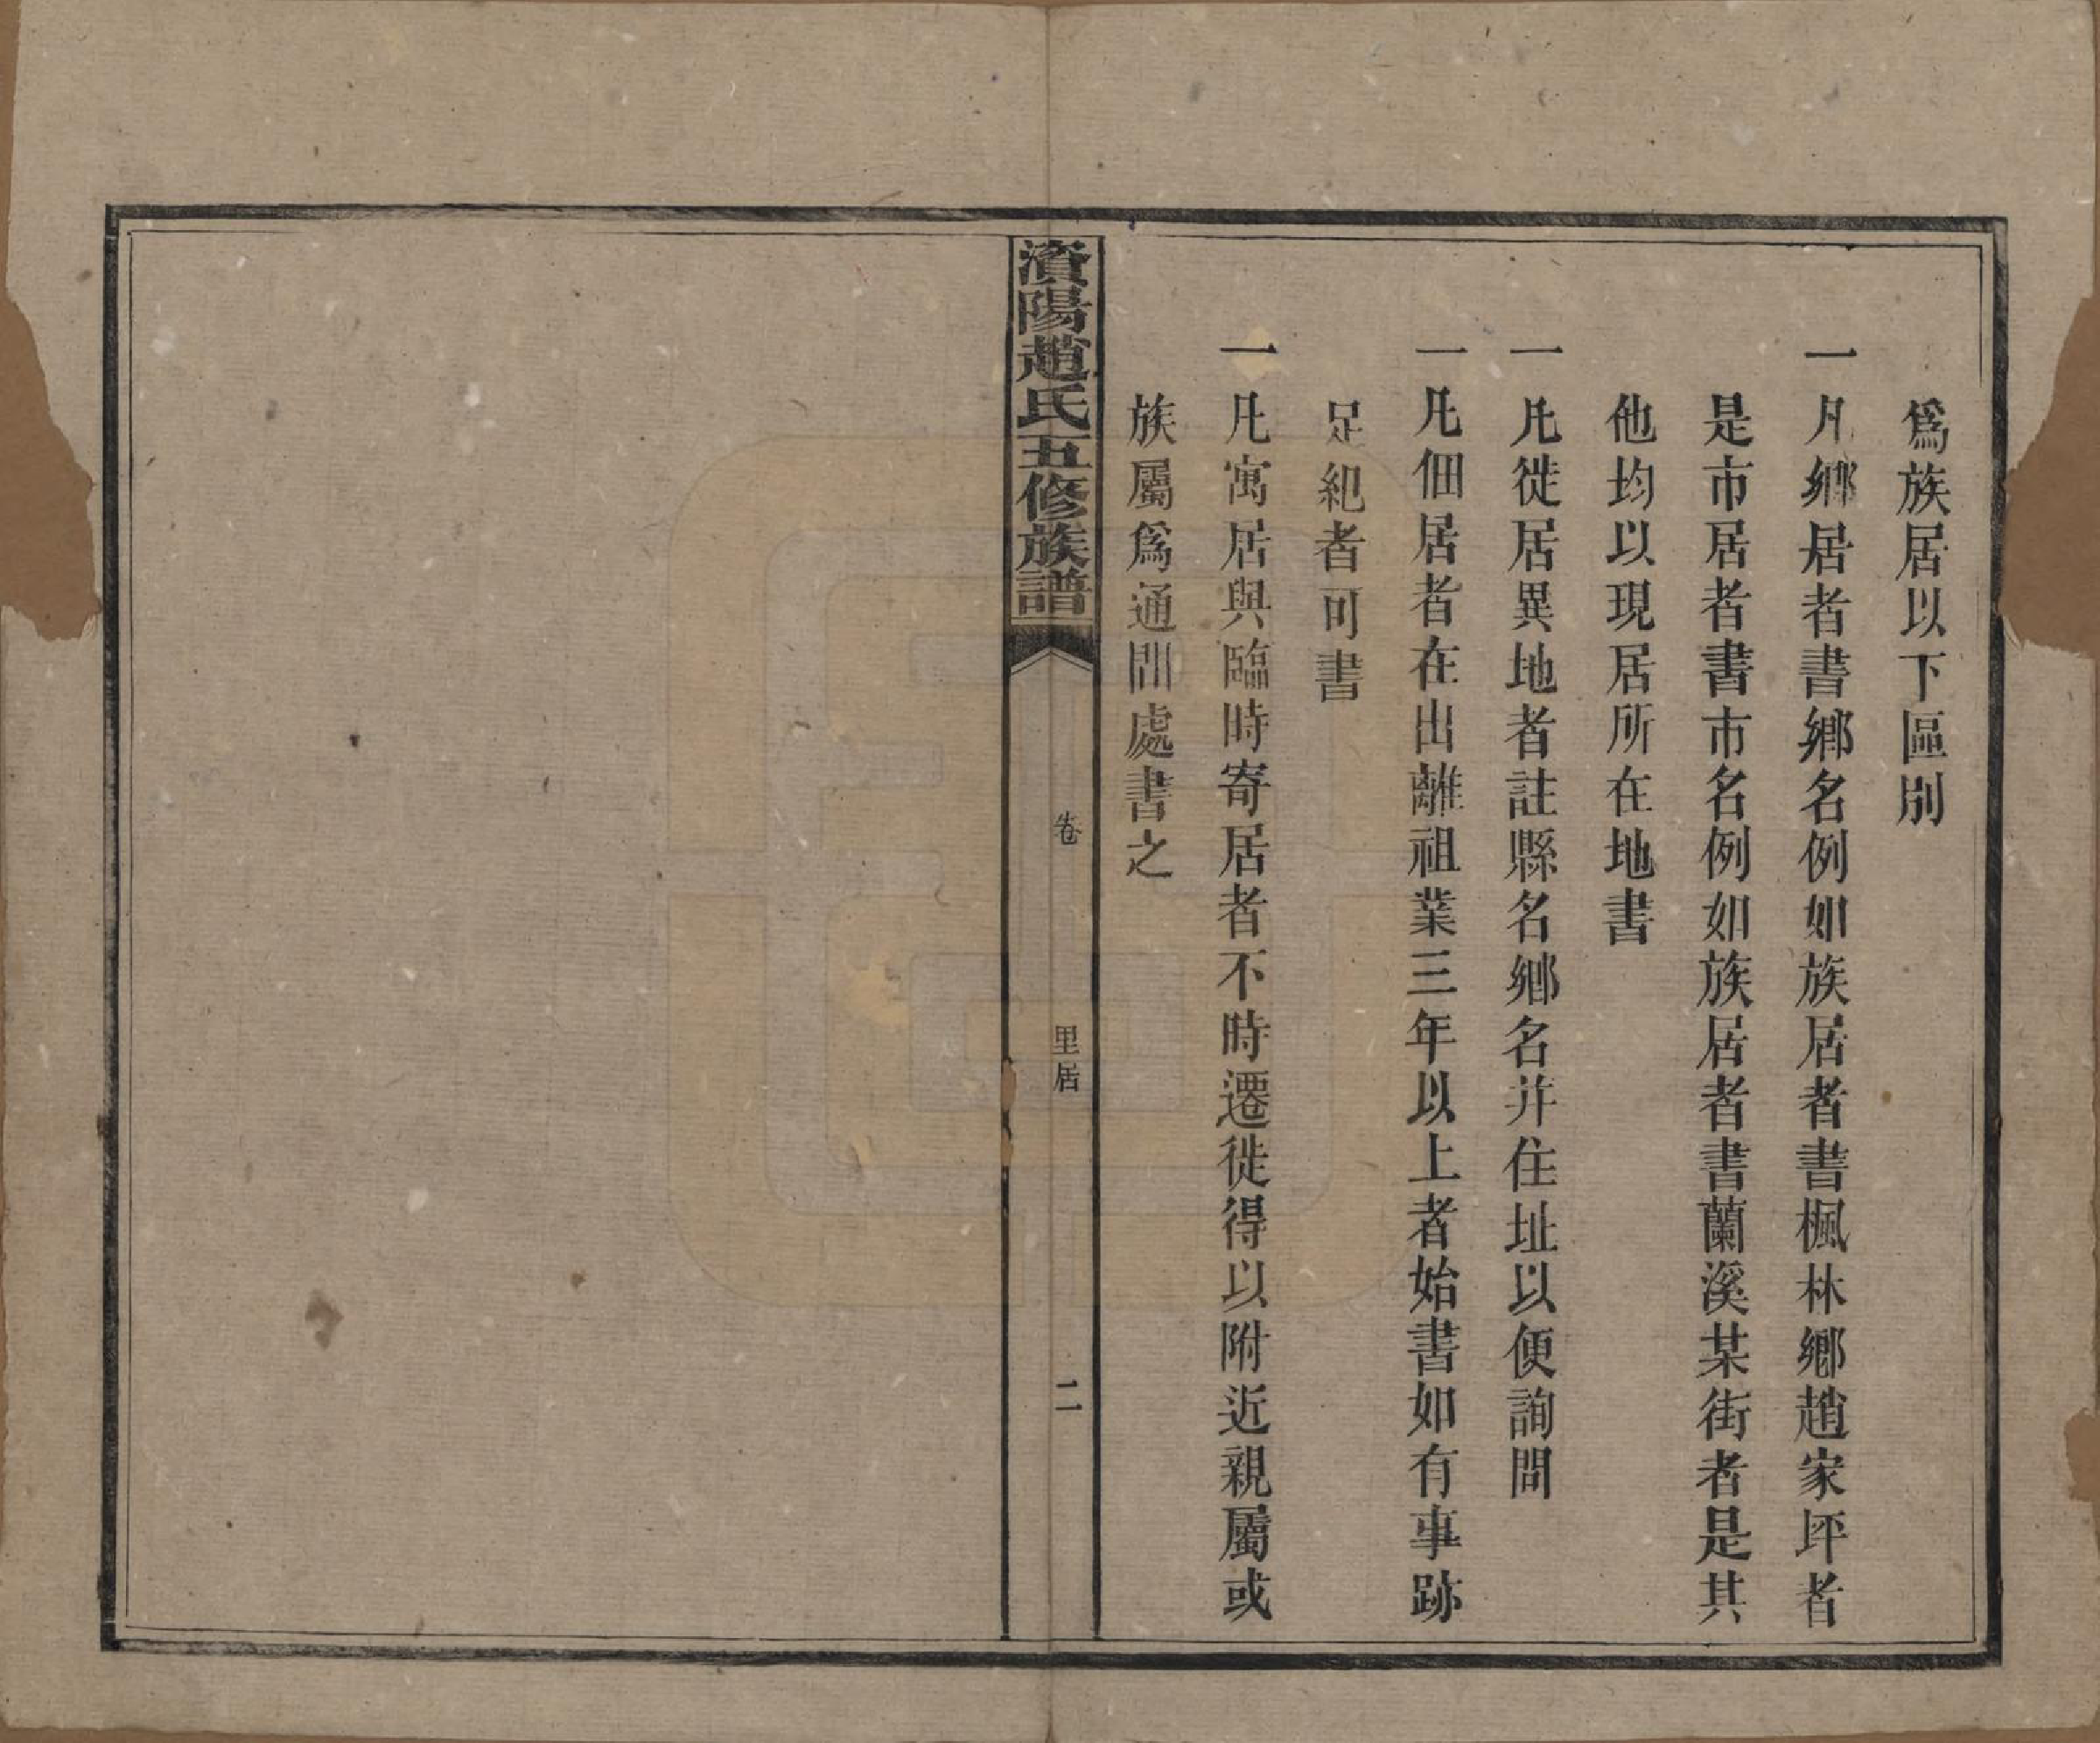 爲族居以下區別
一凡鄉居者書鄉名例如族居者書楓林鄉趙家坪者
是市居者書市名例如族居者書蘭溪某街者是其
他均以現居所在地書
一凡徙居異地者註縣名鄉名并住址以便詢問
一凡佃居者在出離祖業三年以上者始書如有事跡
足紀者可書
一凡寓居與臨時寄居者不時遷徙得以附近親屬或
族屬爲通問處書之
濱陽趙氏五修族譜
卷
里居
二